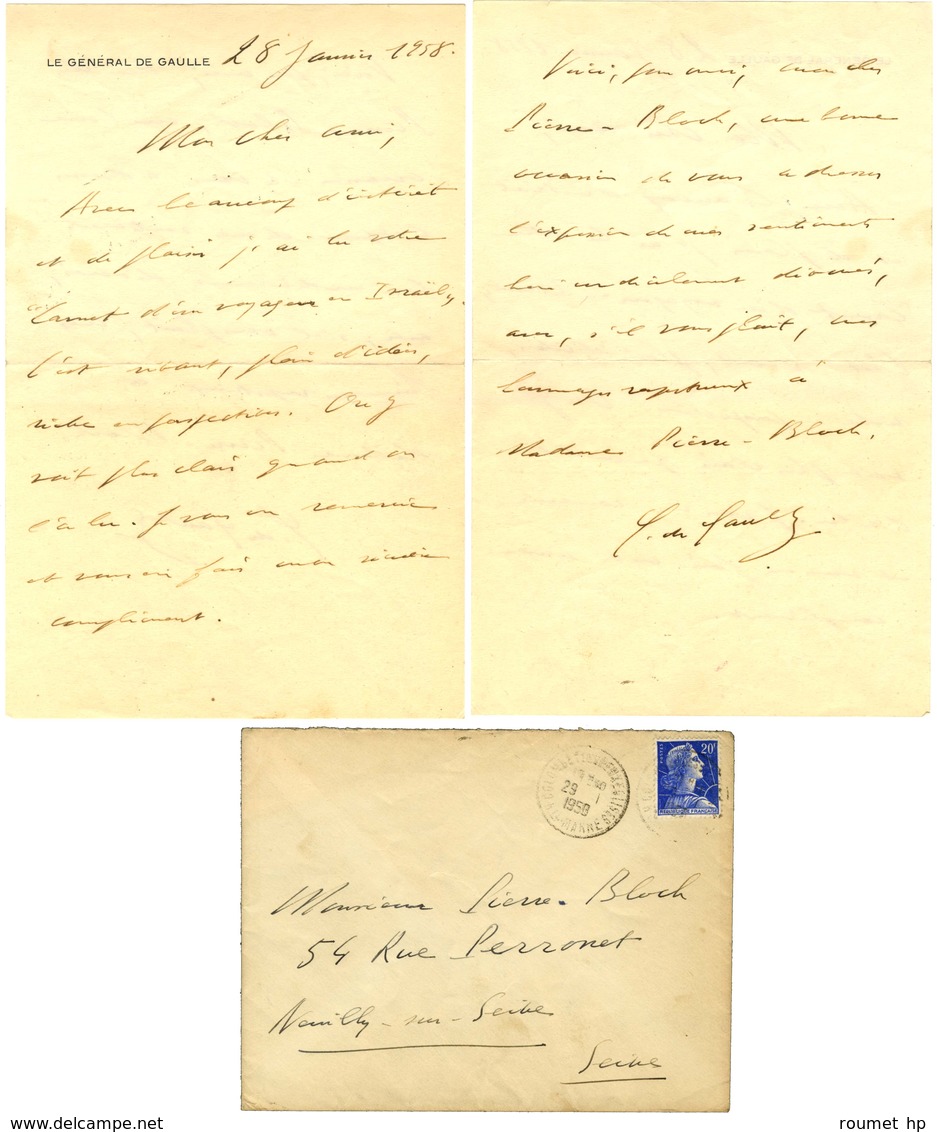 LE GÉNÉRAL DE GAULLE 28 Janvier 1958.
Mon cher ami,
Avec beaucoup d'intérêt
et de plaisir j'ai lu votre
"Carnet d'un voyageur en Israël".
C'est vivant, plein d'idées,
riche en perspectives. On y
voit plus clair quand on
l'a lu. Je vous en remercie
et vous en fais mon sincère
compliment.
Voici, pour moi, mon cher
Pierre-Bloch, une bonne
occasion de vous adresser
l'expression de mes sentiments
bien cordialement dévoués,
avec, s'il vous plaît, mes
hommages respectueux à
Madame Pierre-Bloch.
C. de Gaulle.
COLOMBEY LES DEUX EGLISES
29 - 1
1958
HTE MARNE
POSTES
20F
REPUBLIQUE FRANÇAISE
Monsieur Pierre-Bloch
54 Rue Perronet
Neuilly-sur-Seine
Seine
roumet hp